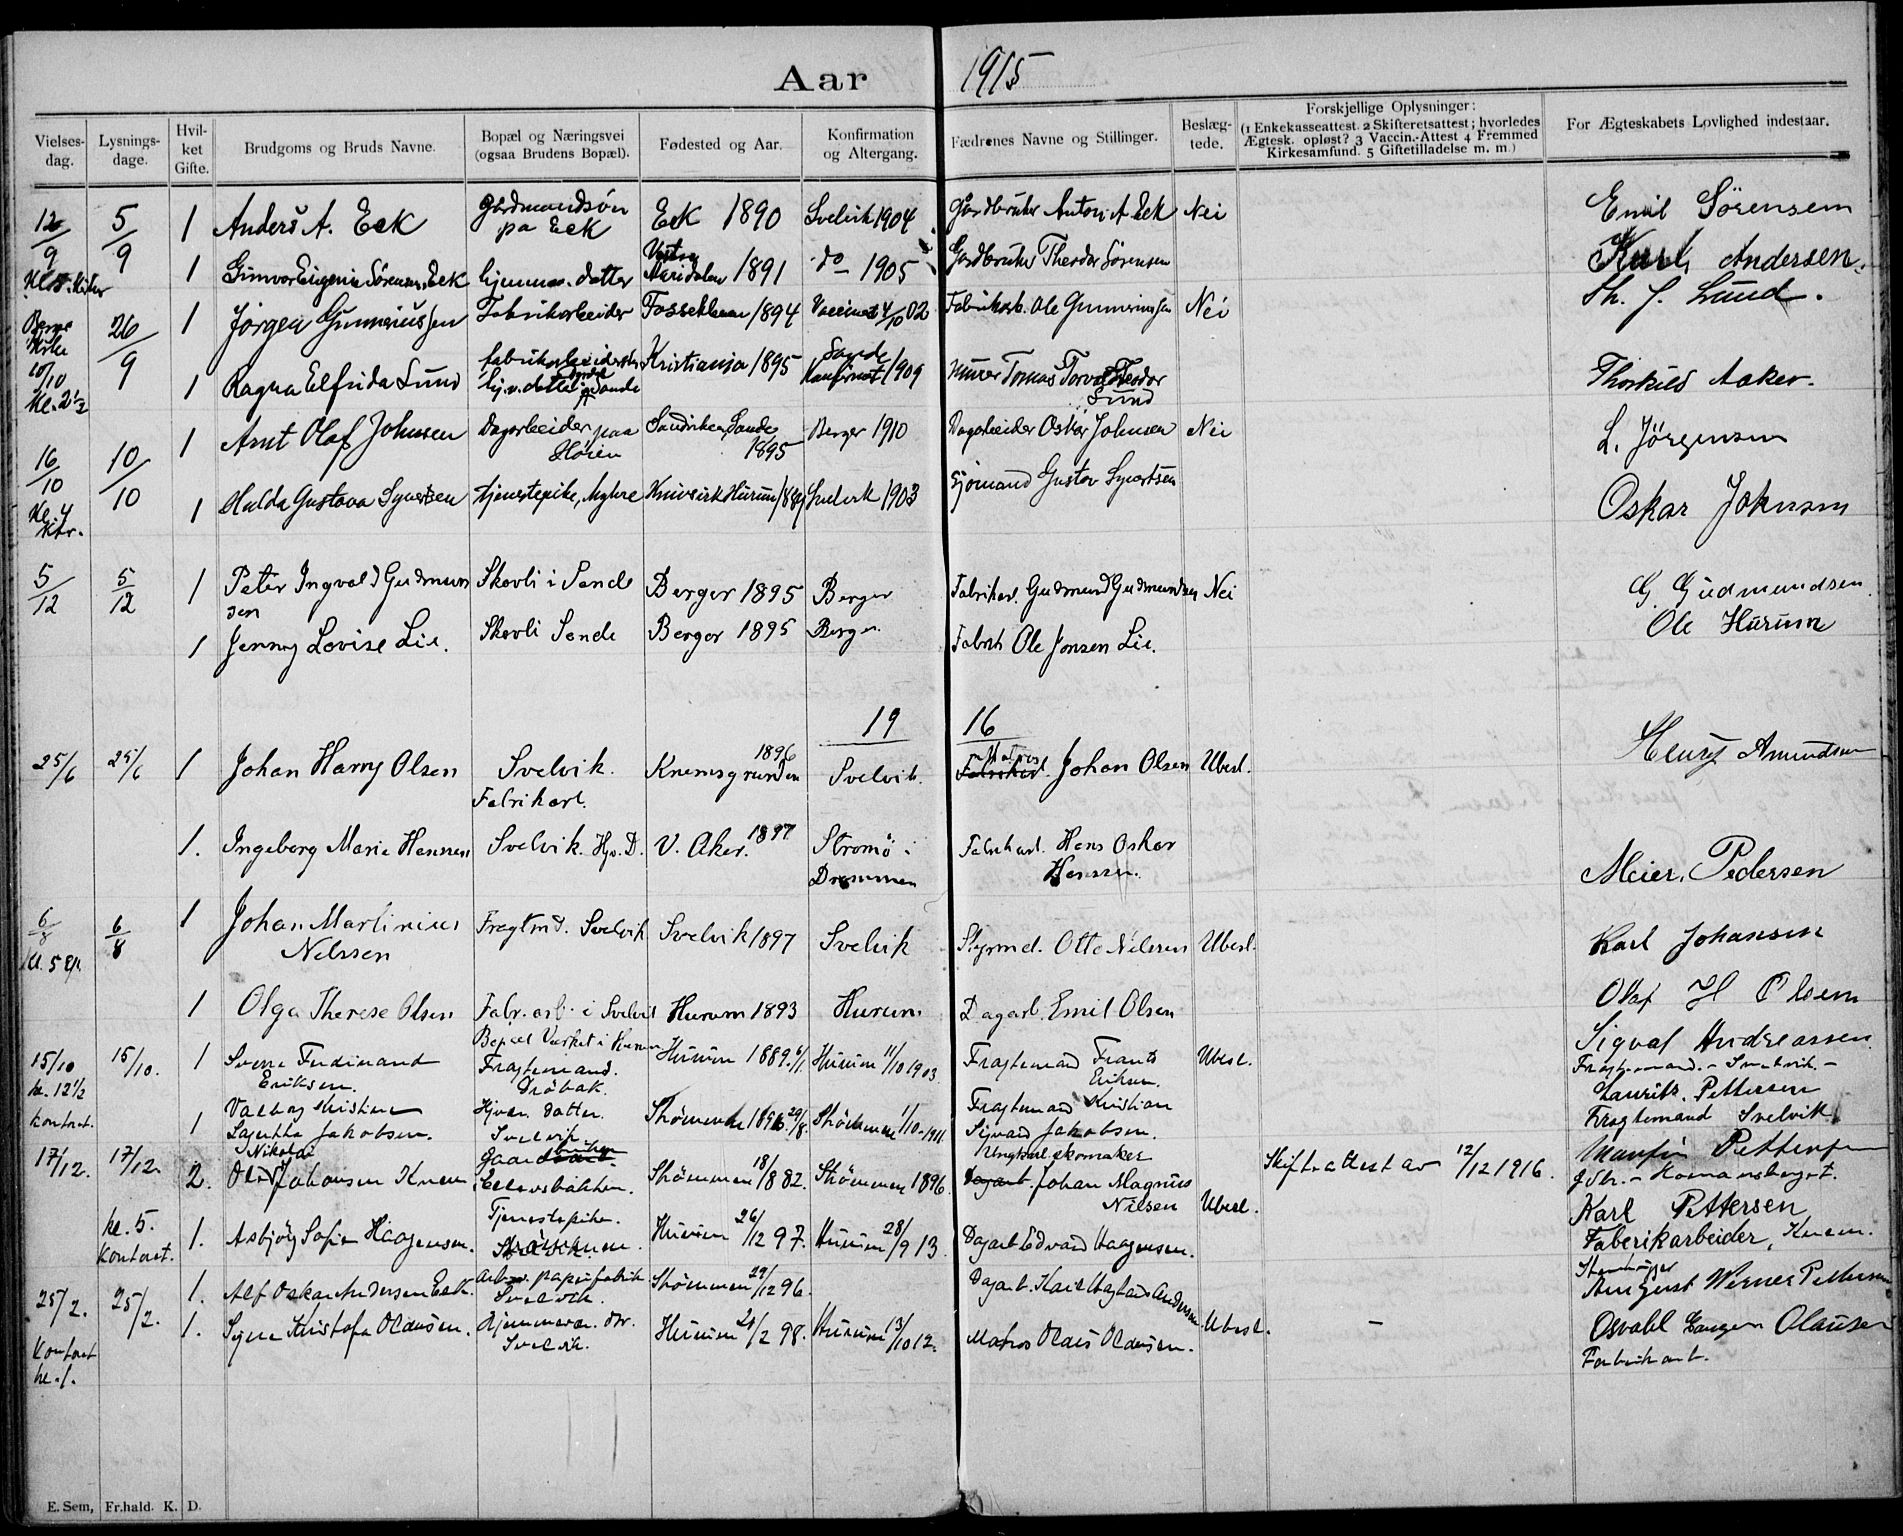 Aar 1915
Vielses-dag. Lysnings-dage. Hvil-ket Gifte. Brudgoms og Bruds Navne. Bopæl og Næringsvei (ogsaa Brudens Bopæl). Fødested og Aar. Konfirmation og Altergang. Fædrenes Navne og Stillinger. Beslæg-tede. Forskjellige Oplysninger: (1 Enkekasseattest. 2 Skifteretsattest; hvorledes Ægtesk. opløst? 3 Vaccin.-Attest 4 Fremmed Kirkesamfund. 5 Giftetilladelse m. m.) For Ægteskabets Lovlighed indestaar.
12/9 5/9 1 Anders A. Eck Gårdmandsøn på Eck Eck 1890 Svelvik 1904 Gårdbruker Anton A Eck Nei Emil Sörensen
1 Gunvor Eugenie Sørensen, Eck hjemmev. datter 1891 do 1905 Gårdbruker Theodor Sörensen Karl Andersen.
Berger Kirke 10/10 kl. 2½ 26/9 1 Jörgen Gunneriussen Fabrikarbeider Fossekleven 1894 4/10 02 Fabrikarb. Ole Gunneriussen Nei Th. J. Lund.
1 Ragna Elfrida Lund hjv. datter Sande Kristiania 1895 Sande Konfirmert 1909 Murer Tomas Theodor Lund Thorkild Aaker.
16/10 kl. 4 10/10 1 Arnt Olaf Johnsen Dagarbeider paa Höien Sandviken, Sande 1895 Berger 1910 Dagarbeider Oskar Johnsen Nei L. Jörgensen
1 Hulda Gustava Syvertsen tjenestepike, Myhre Hurum 1889 Svelvik 1903 Sjömand Gustav Syvertsen Oskar Johnsen
5/12 5/12 1 Peter Ingvald Gudmundsen Skovli i Sande Berger 1895 Berger Fabrikarb. Gudmund Gudmundsen Nei G Gudmundsen
1 Jenny Lovise Lie. Skovli Sande Berger 1895 Berger. Fabrik Ole Jonsen Lie. Ole Hurum
19 16
25/6 25/6 1 Johan Harry Olsen Svelvik. Fabrikarb. Knemsgrunden 1896 Svelvik. Matros Johan Olsen Ubesl. Henry Amundsen
1. Ingeborg Marie Hansen Svelvik. Hjv. D. V. Aker. 1897 Strømsö i Drammen Fabrikarb. Hans Oskar Hansen. Meier. Pedersen
6/8 kl. 5 6/8 1 Johan Martinius Nilssen Fragtmd. Svelvik Svelvik 1897 Svelvik Styrmd. Otto Nilssen Ubesl. Karl Johansen
1 Olga Therese Olsen Fabr. arb. i Svelvik Hurum 1893 Hurum Dagarb. Emil Olsen Olaf H Olsen
15/10 kl. 12½ kontoret. 15/10. 1 Sverre Ferdinand Eriksen. Fragtemand. Dröbak. Hurum 1889 6/1 Hurum 11/10 1903. Fragtemand Frants Eriksen. Ubesl. Sigval Andreassen Fragtemand. - Svelvik. -
1 Valborg Kristine Jakobsen. Hjvær. datter. Svelvik. Strömmen 1896 29/8. Strömmen 1/10-1911. Fragtemand Kristian Sigvard Jakobsen. Laurits. Pettersen Fragtemand Svelvik
17/12. 17/12. 2. Nikolai Johansen Knem Strömmen 18/8 82. Strömmen 1896. skomaker Johan Magnus Nilsen Ubesl. Skifteattest av 12/12 1916. Pettersen
kl. 5. kontoret. 1. Asbjörg Sofie Haagensen. Tjenestepike. Hurum 26/12 97. Hurum 28/9 13. Dagarb Edvard Haagensen. Karl Pettersen Faberikarbeider, Knem.
25/2. Kontoret kl. 1. 25/2. 1. Alf Oskar Andersen Eek. papirfabrik Svelvik. Strömmen 29/12 96. Dagarb. Karl Andersen Ubesl. - August Werner Pettersen
1. Signe Kristofa Olausen. Hjemmevær. dtr. Svelvik. Hurum 21/2 98. Hurum 13/10 12. Matros Olaus Olausen. Osvald Eugen Olausen Fabrikarb.
E. Sem, Fr.hald. K. D.